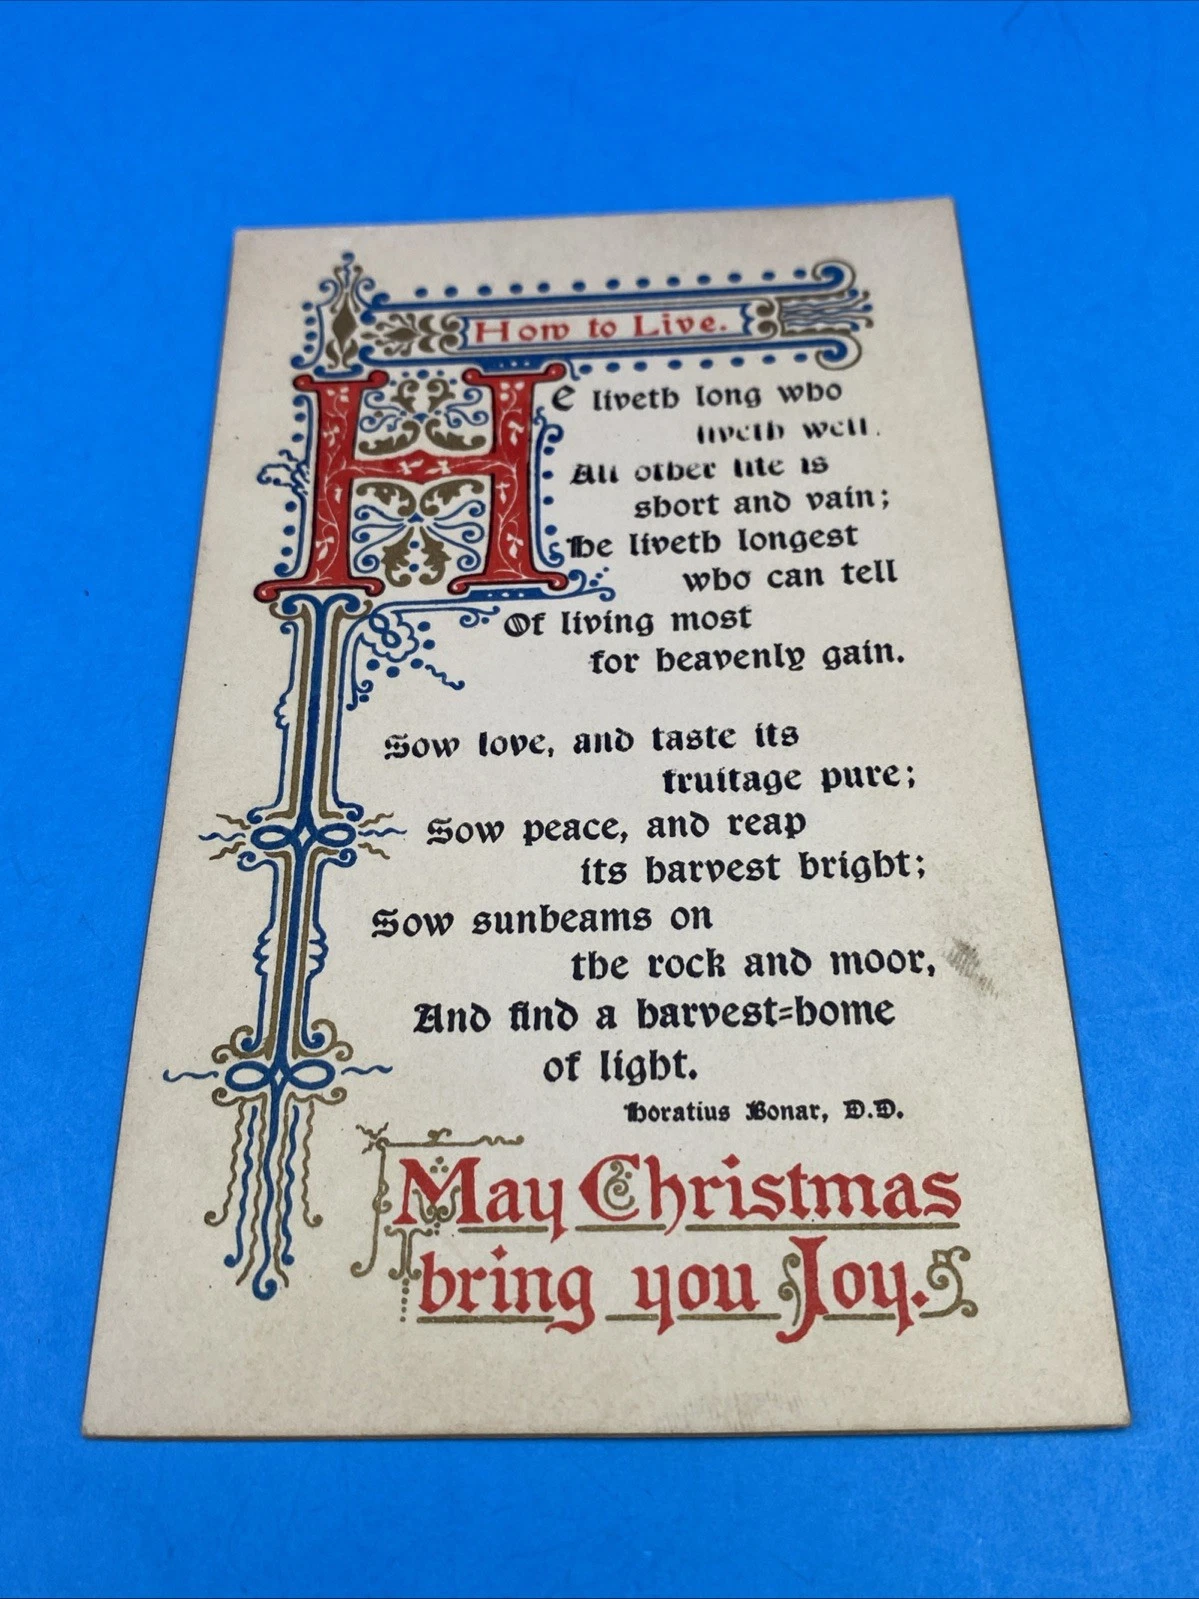 How to Live.
HE liveth long who
liveth well.
All other life is
short and vain;
He liveth longest
who can tell
Of living most
for heavenly gain.
Sow love, and taste its
fruitage pure;
Sow peace, and reap
its harvest bright;
Sow sunbeams on
the rock and moor,
And find a harvest=home
of light.
Horatius Bonar, D.D.
May Christmas
bring you Joy.